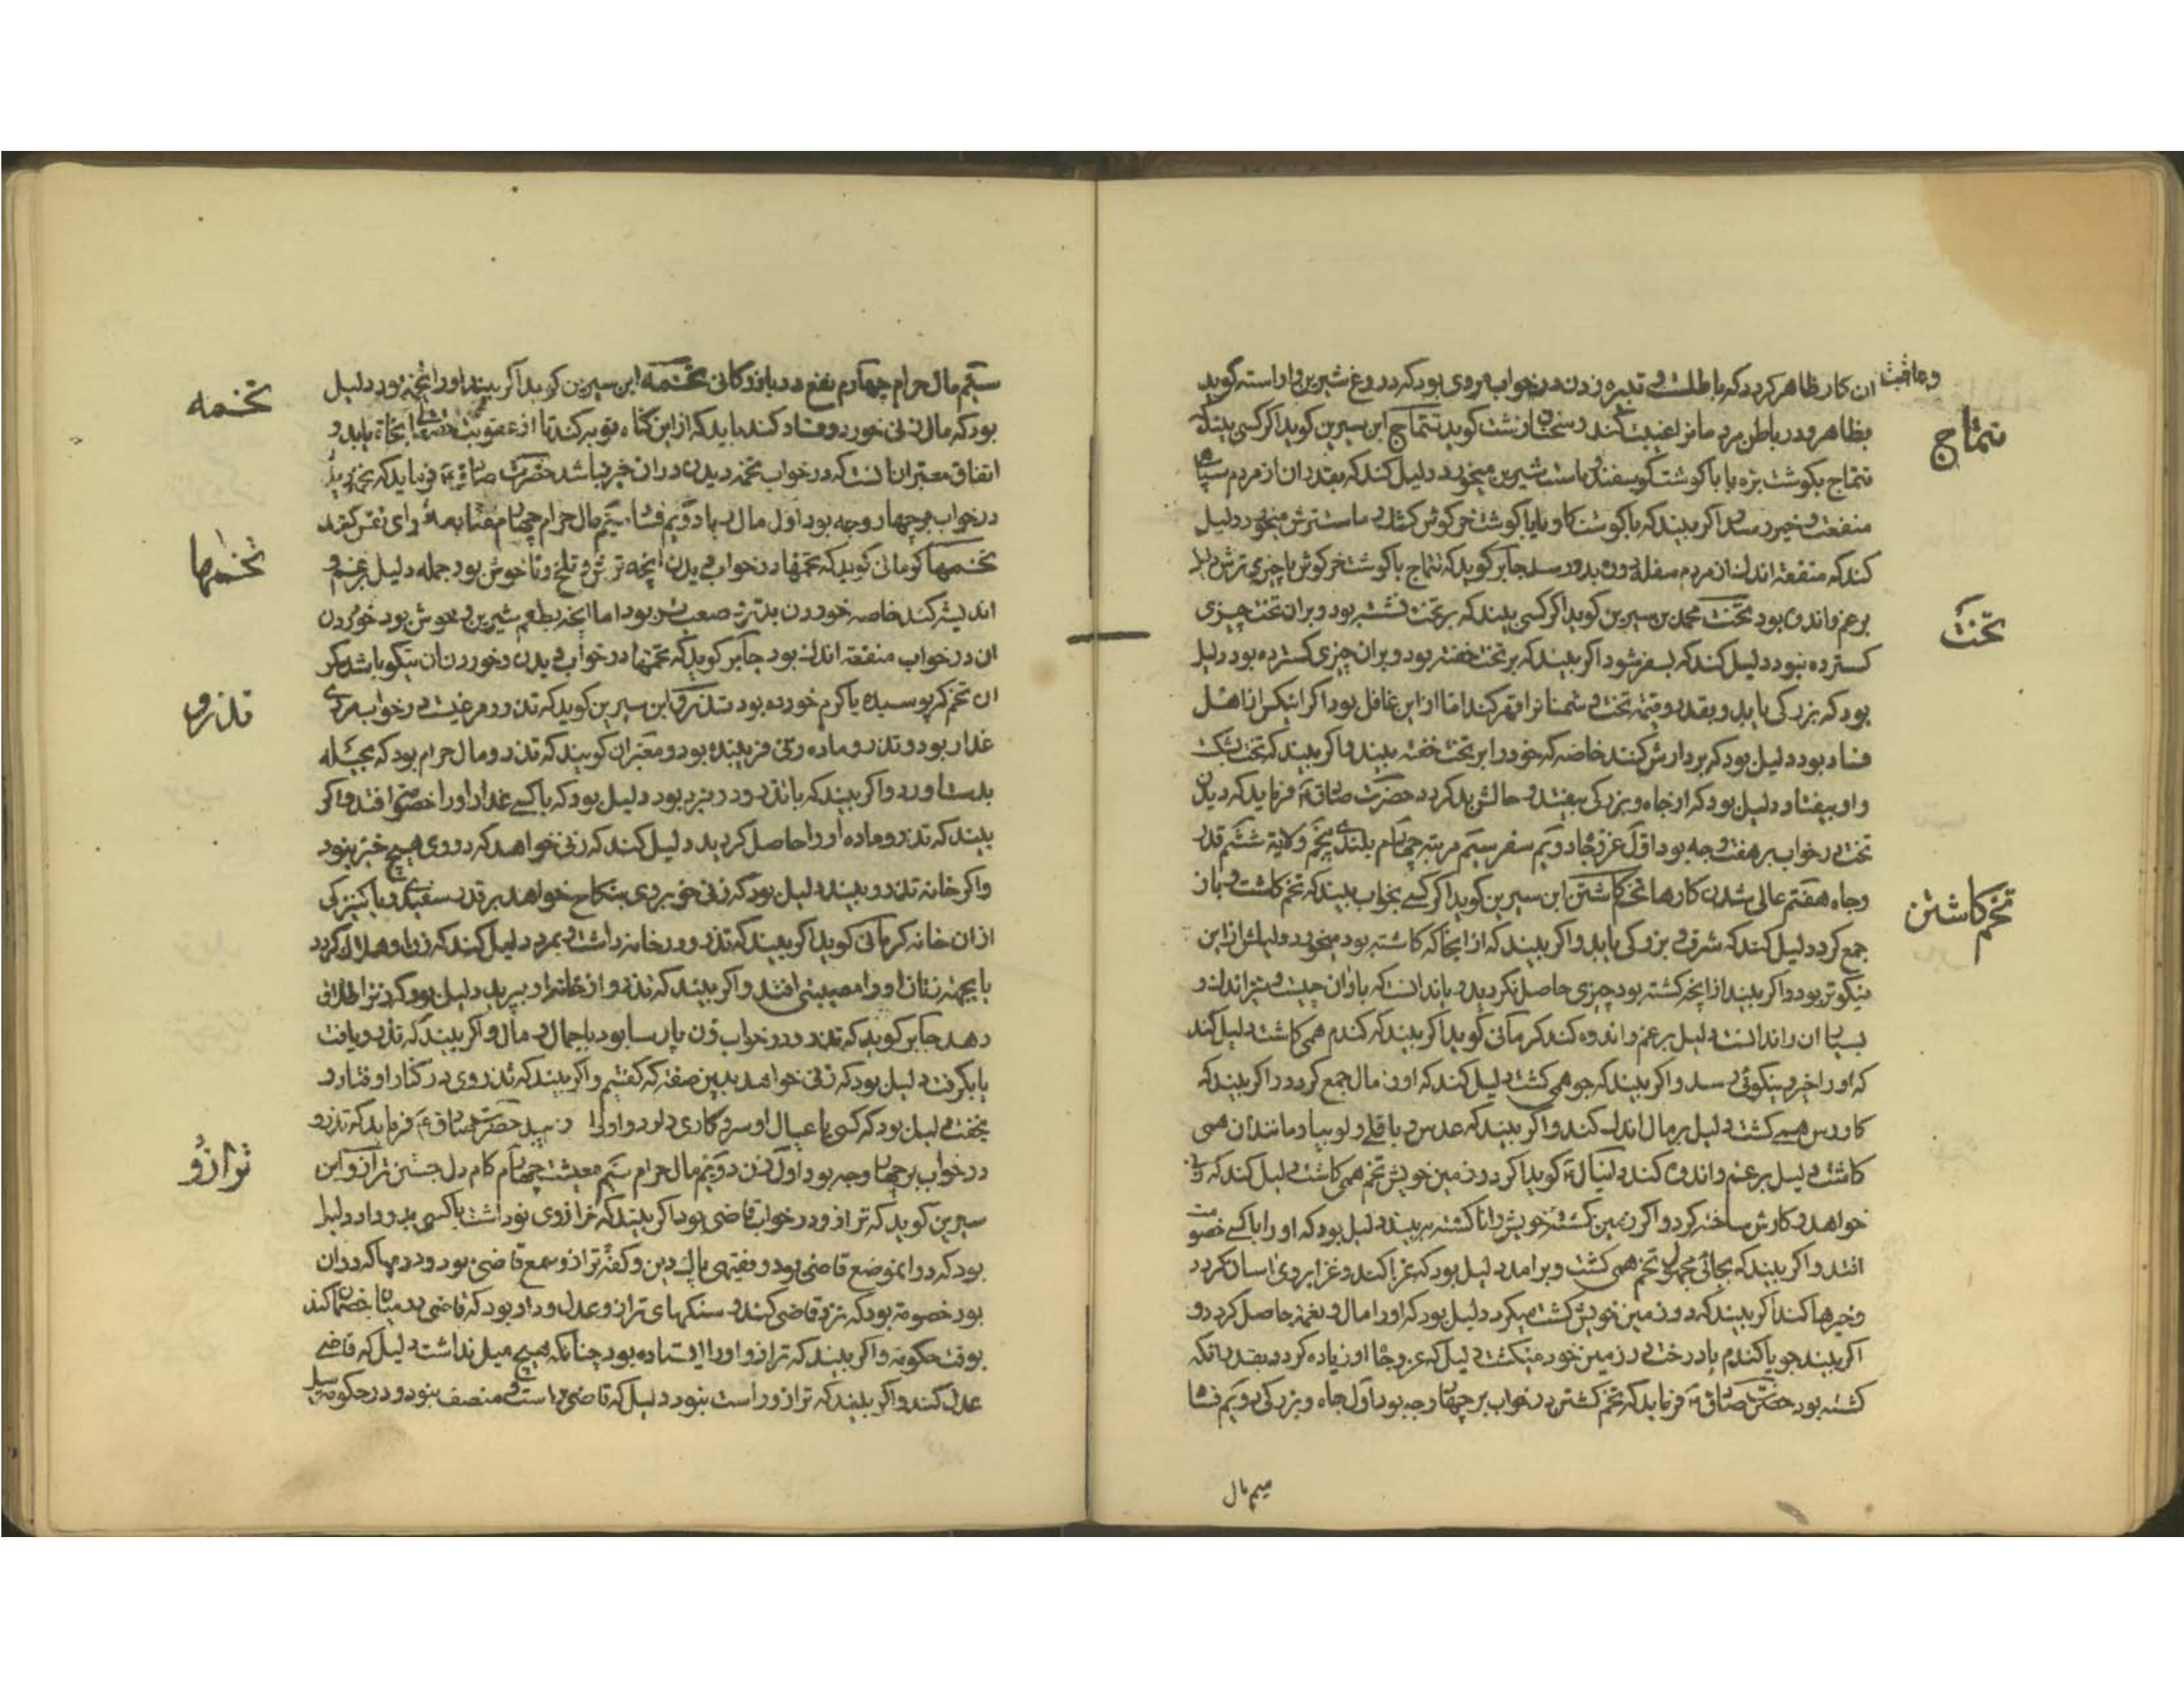 وعاقبت ان کار ظاهر کردد که باطلست و تبیره زدن در خواب مردی بود که دروغ شیرین و اراسته کوید
بظاهر و در باطن مردمانرا غیبت کند و سخنان زشت کوید تتماج ابن سیرین کوید اکر کسی بیند که
تتماج
تتماج بکوشت بره یا با کوشت کوسفند و ماست شیرین میخورد دلیل کند که بقدر ان از مردم سپاهی
منفعت و خیر رسد و اکر بیند که با کوشت کاو و یا با کوشت خرکوش و ماست ترش میخورد دلیل
کند که منفعة اندک از مردم سفله و دون بدو رسد جابر کوید که تتماج با کوشت خرکوش یا چیزی ترش دلیل
بر غم و اندوه بود تخت محمد بن سیرین کوید اکر کسی بیند که بر تخت نشسته بود و بر ان تخت چیزی
تخت
کسترده نبود دلیل کند که بسفر شود و اکر بیند که بر تخت خفته بود و بر ان چیزی کسترده بود دلیل
بود که بزرکی یابد و بقدر و قیمة تخت و دشمنانرا قهر کند اما از این غافل بود و اکر اینکس از اهل
فساد بود دلیل بود که بر دارش کنند خاصه که خود را بر تخت خفته بیند و اکر بیند که تخت بشکست
و او بیفتاد دلیل بود که از جاه و بزرکی بیفتد و حالش بد کردد حضرت صادق ع فرماید که دیدن
تخت در خواب بر هفت وجه بود اول عز و جاه دویم سفر سیم مرتبه چهارم بلندی پنجم ولایة ششم قدر
و جاه هفتم عالی شدن کارها تخم کاشتن ابن سیرین کوید اکر کسے بخواب بیند که تخم کاشت و باز
تخم کاشتن
جمع کرد دلیل کند که شرف و بزرکی یابد و اکر بیند که از انجا که کاشته بود میخورد دلیلش از این
نیکوتر بود و اکر بیند از انچه کشته بود چیزی حاصل نکردید و یا ندانست که باران چیست
بسیار ان را ندانست دلیل بر غم و اندوه کند کرمانی کوید اکر بیند که کندم همی کاشت دلیل کند
که او را خیر و نیکوئی رسد و اکر بیند که جو همی کشت دلیل کند که او را مال جمع کردد و اکر بیند که
کاورس همے کشت دلیل بر مال اندک کند و اکر بیند که عدس و باقلے و لوبیا و مانند ان همی
کاشت دلیل بر غم و اندوه کند دانیال ع کوید اکر در زمین خویش تخم همی کاشت دلیل کند که زنی
خواهد و کارش ساخته کردد و اکر زمین کشته خویش را ناکشته بیند دلیل بود که او را با کسے خصومت
افتد و اکر بیند که بجائی مجهول تخم همی کشت و بر امد دلیل بود که غزا کند و غزا بر وی اسان کردد
و خیرها کند اکر بیند که در زمین خویش کشت میکرد دلیل بود که او را مال و نعمة حاصل کردد و
اکر بیند جو یا کندم یا درخت در زمین خود میکشت دلیل که عز و جاه او زیاده کردد بقدر انکه
کشته بود حضرت صادق ع فرماید که تخم کشتن در خواب بر چهار وجه بود اول جاه و بزرکی دویم فساد
سیم مال
سیم مال حرام چهارم نفع در بازرکانی تخمه ابن سیرین کوید اکر بیند او را تخمه بود دلیل
تخمه
بود که مال زنی خورد و فساد کند باید که از این کناه توبه کند تا از عقوبت حقتعالی نجاة یابد و
اتفاق معبران انست که در خواب تخمه دیدن در ان خیر نباشد حضرت صادق ع فرماید که تخمه دیدن
در خواب بر چهار وجه بود اول مال ربا دویم فساد سیم مال حرام چهارم متابعة رای نفس کردن
تخمها کرمانی کوید که تخمها در خواب دیدن انچه ترش و تلخ و ناخوش بود جمله دلیل بر غم و
تخمها
اندیشه کند خاصه خوردن بدتر و صعب تر بود اما انچه بطعم شیرین و خوش بود خوردن
ان در خواب منفعة اندک بود جابر کوید که تخمها در خواب دیدن و خوردنان نیکو باشد مکر
ان تخم که پوسیده یا کرم خورده بود تذرو ابن سیرین کوید که تذرو مرغیست در خواب مردی
تذرو
غدار بود و تذرو ماده زنی فریبنده بود و معبران کویند که تذرو مال حرام بود که بحیله
بدست اورد و اکر بیند که با تذرو در نبرد بود دلیل بود که با کسے غدار او را خصومت افتد و اکر
بیند که تذرو ماده او را حاصل کردید دلیل کند که زنی خواهد که در وی هیچ خیر نبود
و اکر خانه تذرو بیند دلیل بود که زنی خوبروی بنکاح خواهد و یا کنیزکی
از ان خانه کرمانی کوید اکر بیند که تذرو در خانه داشت و بمرد دلیل کند که زن او هلاک کردد
یا بجهة زنان او را مصیبتی افتد و اکر بیند که تذرو از خانه او بپرید دلیل بود که زنرا طلاق
دهد جابر کوید که تذرو در خواب زن پارسا بود با جمال و مال و اکر بیند که تذرو یافت
یا بکرفت دلیل بود که زنی خواهد بدین صفة که کفتیم و اکر بیند که تذروی در کنار او فتاد و
بخفت دلیل بود که کسی با عیال او سر و کاری دارد حضرت صادق ع فرماید که تذرو
در خواب بر چهار وجه بود اول زن دویم مال حرام سیم معیشت چهارم کام دل جستن ترازو ابن
ترازو
سیرین کوید که ترازو در خواب قاضی بود اکر بیند که ترازوی نو داشت یا کسی بدو داد دلیل
بود که در انموضع قاضی بود و فقیهی پاک دین و کفه ترازو سمع قاضی بود و درمها که در ان
بود خصومة بود که نزد قاضی کنند و سنکهای ترازو عدل و داد بود که قاضی در میان خصمان کند
بوقت حکومة و اکر بیند که ترازو او را ایستاده بود چنانکه هیچ میل نداشت دلیل که قاضے
عدل کند و اکر بیند که ترازو راست نبود دلیل که قاضی راست و منصف نبود و در حکومة میل